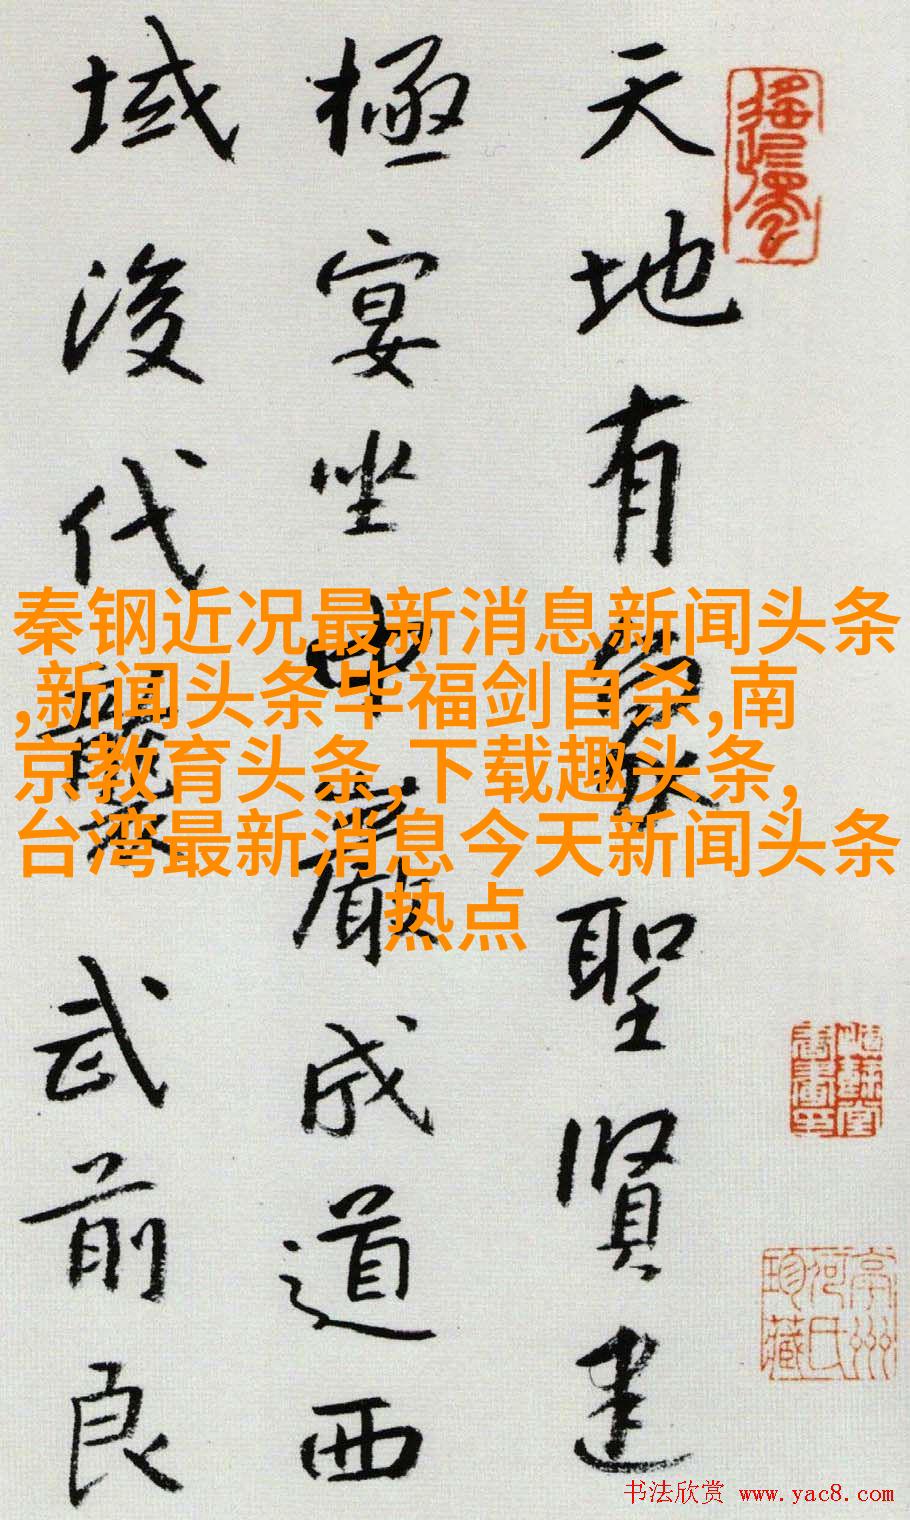 天地有象聖賢建
極宴坐中嚴成道西
域後代襲武前良
秦钢近况最新消息新闻头条
,新闻头条毕福剑自杀,南
京教育头条,下载趣头条,
台湾最新消息今天新闻头条
热点
亭州
何氏
珍藏
书法欣赏 www.yac8.com